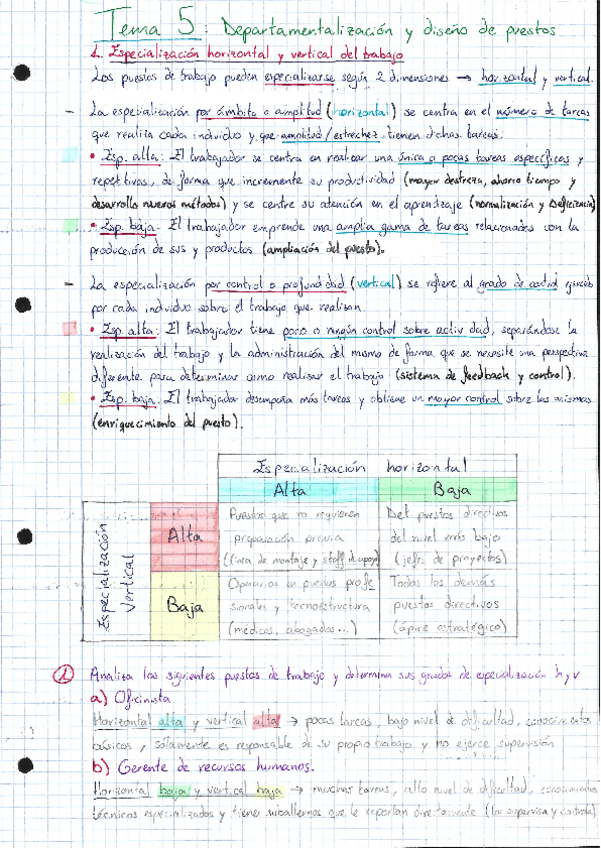 Tema 5: Departamentalización y diseño de puestos
1. Especialización horizontal y vertical del trabajo
Los puestos de trabajo pueden especializarse según 2 dimensiones → horizontal y vertical.
- La especialización por ámbito o amplitud (horizontal) se centra en el número de tareas
que realiza cada individuo y que amplitud/estrechez tienen dichas tareas.
• Esp. alta: El trabajador se centra en realizar una única o pocas tareas específicas y
repetitivas, de forma que incremente su productividad (mayor destreza, ahorro tiempo y
desarrollo nuevos métodos) y se centre su atención en el aprendizaje (normalización y
• Esp. baja: El trabajador emprende una amplia gama de tareas relacionadas con la
producción de sus y productos (ampliación del puesto).
- La especialización por control o profundidad (vertical) se refiere al grado de control ejercido
por cada individuo sobre el trabajo que realizan.
• Esp. alta: El trabajador tiene poco o ningún control sobre actividad, separándose la
realización del trabajo y la administración del mismo de forma que se necesite una perspectiva
diferente para determinar como realizar el trabajo (sistema de feedback y control).
• Esp. baja: El trabajador desempeña más tareas y obtiene un mayor control sobre las mismas
(enriquecimiento del puesto).
Especialización horizontal
Alta Baja
Especialización Vertical
Alta
Puestos que no requieren
preparación previa
(línea de montaje y staff de apoyo)
puestos directivos
del nivel más bajo
(jefes de proyectos)
Baja
Operarios en puestos profe
sionales y tecnoestructura
(médicos, abogados...)
Todos los demás
puestos directivos
(ápice estratégico)
1 Analiza los siguientes puestos de trabajo y determina sus grados de especialización h y v
a) Oficinista
Horizontal alta y vertical alta → pocas tareas, bajo nivel de dificultad, conocimientos
básicos, solamente es responsable de su propio trabajo y no ejerce supervisión
b) Gerente de recursos humanos.
Horizontal baja y vertical baja → muchas tareas, alto nivel de dificultad, conocimientos
técnicos especializados y tiene que le reportan directamente (los supervisa y controla)